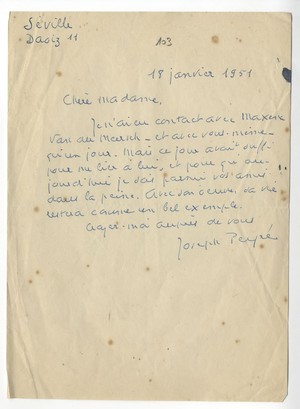 Séville
Daoiz 11
103
18 janvier 1951
Chère Madame,
Je n'ai eu contact avec Maxence
Van der Meersch – et avec vous-même –
qu'un jour. Mais ce jour avait suffi
pour me lier à lui, et pour que au-
jourd'hui je sois parmi vos amis
dans la peine. Avec son œuvre, sa vie
restera comme un bel exemple.
moi auprès de vous
Joseph Peyré